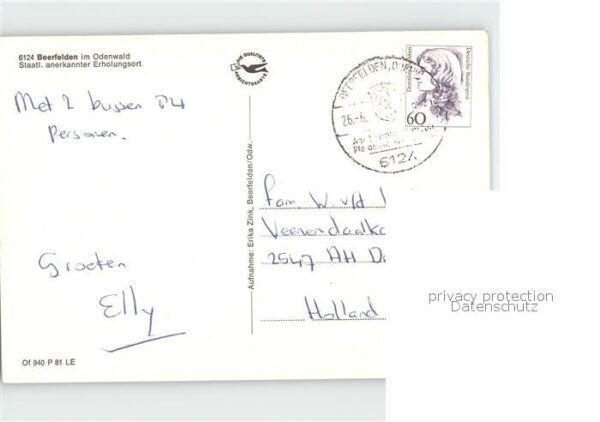 6124 Beerfelden im Odenwald
Staatl. anerkannter Erholungsort
Met 2 bussen 84
Personen.
Groeten
Elly
Of 940 P 81 LE
Aufnahme: Erika Zink, Beerfelden/Odw.
Deutsche Bundespost
60
BEERFELDEN, ODENW
26.-6.
6124
Fam W. v/d
2547 AH D
Holland
privacy protection
Datenschutz